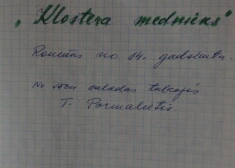 "Klostera mednieks"
Romāns no 14. gadsimta.
No vācu valodas tulkojis
T. Pormalietis